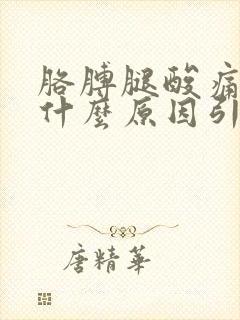 胳膊腿酸痛
什麼原因引
唐精華